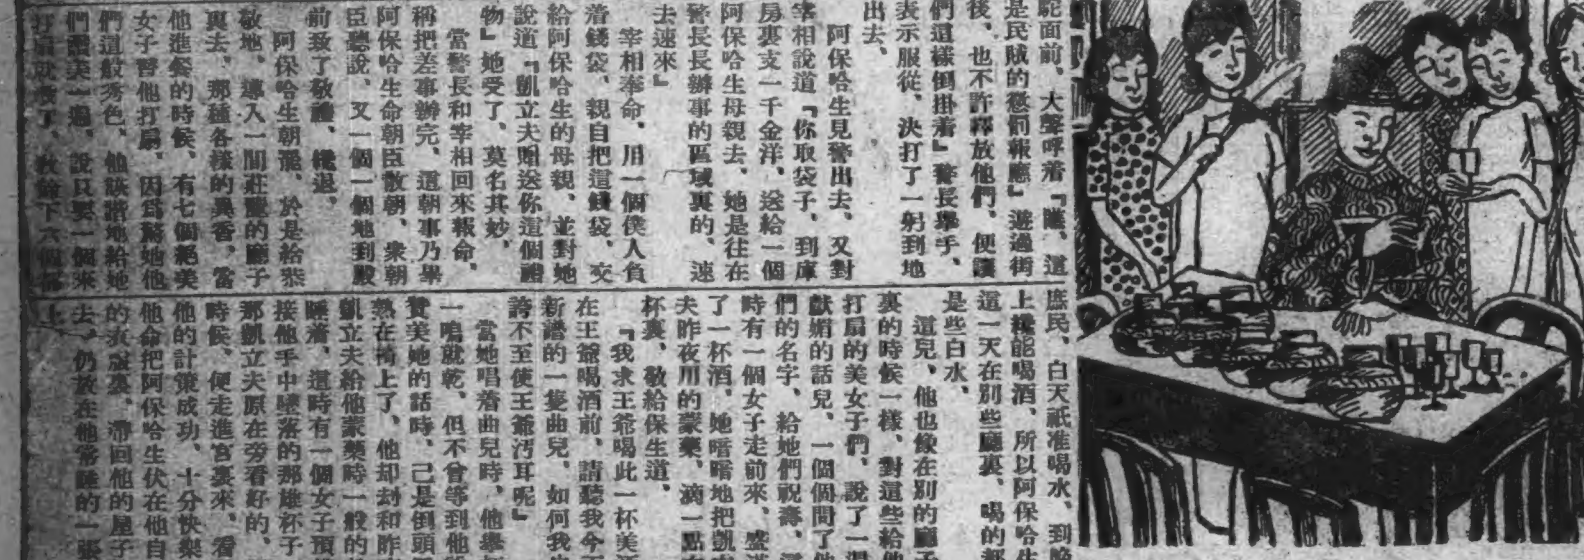 駝面前、大聲呼着『瞧、這
是民賊的懲們報應』遊過街
後、也不許釋放他們、便讓
們這樣倒掛着』警長舉手、
表示服從、決打了一躬到地
出去、
阿保哈生見警出去、又對
宰相說道『你取袋子、到庫
房裏支一千金洋、送給一個
阿保哈生母親去、她是往在
警長長辦事的區域裏的、速
去速來』
宰相奉命、用一個僕人負
着錢袋、親自把這錢袋、交
給阿保哈生的母親、並對她
說道『凱立夫贈送你這個禮
物』她受了、莫名其妙、
當警長和宰相回來報命、
稱把差事辦完、這朝事乃畢
阿保哈生命朝臣散朝、衆朝
臣聽說、又一個一個地到殿
前致了敬禮、纔退、
阿保哈生朝罷、於是給恭
敬地、導入一間莊麗的廳子
裏去、那種各樣的異香、當
他進餐的時候、有七個絕美
女子替他打扇、因爲他
們這般秀色、他詼諧地給她
們讚美一遍、說只要一個來
打扇就彀了、教餘下六個都
庶民、白天祇准喝水、到晚
上纔能喝酒、所以阿保哈生
這一天在別些廳裏、喝的都
是些白水、
這兒、他也像在別的廳子
裏的時候一樣、對這些給他
打扇的美女子們、說了一
獻媚的話兒、一個個問了他
們的名字、給她們祝壽、
時有一個女子走前來、盛
了一杯酒、她暗暗地把凱
夫昨夜用的蒙藥、滴一點
杯裏、敬給保生道、
『我求王爺喝此一杯美
在王爺喝酒前、請聽我今
新譜的一隻曲兒、如何我
誇不至使王爺汚耳呢』
當她唱着曲兒時、他舉
一鳴就乾、但不曾等到他
贊美她的話時、己是倒頭
熟在椅上了、他却封和昨
凱立夫給他蒙藥時一般的
睡着、這時有一個女子預
接他手中墜落的那雄杯子
那凱立夫原在旁看好的、
時候、便走進宮裏來、看
他的計策成功、十分快樂
他命把阿保哈生伏在他自
的衣服裏、帶回他的屋子
去、仍放在他常睡的一張